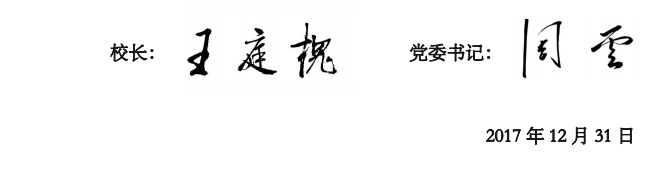 校长：王庭槐 党委书记：周云
2017 年 12 月 31 日